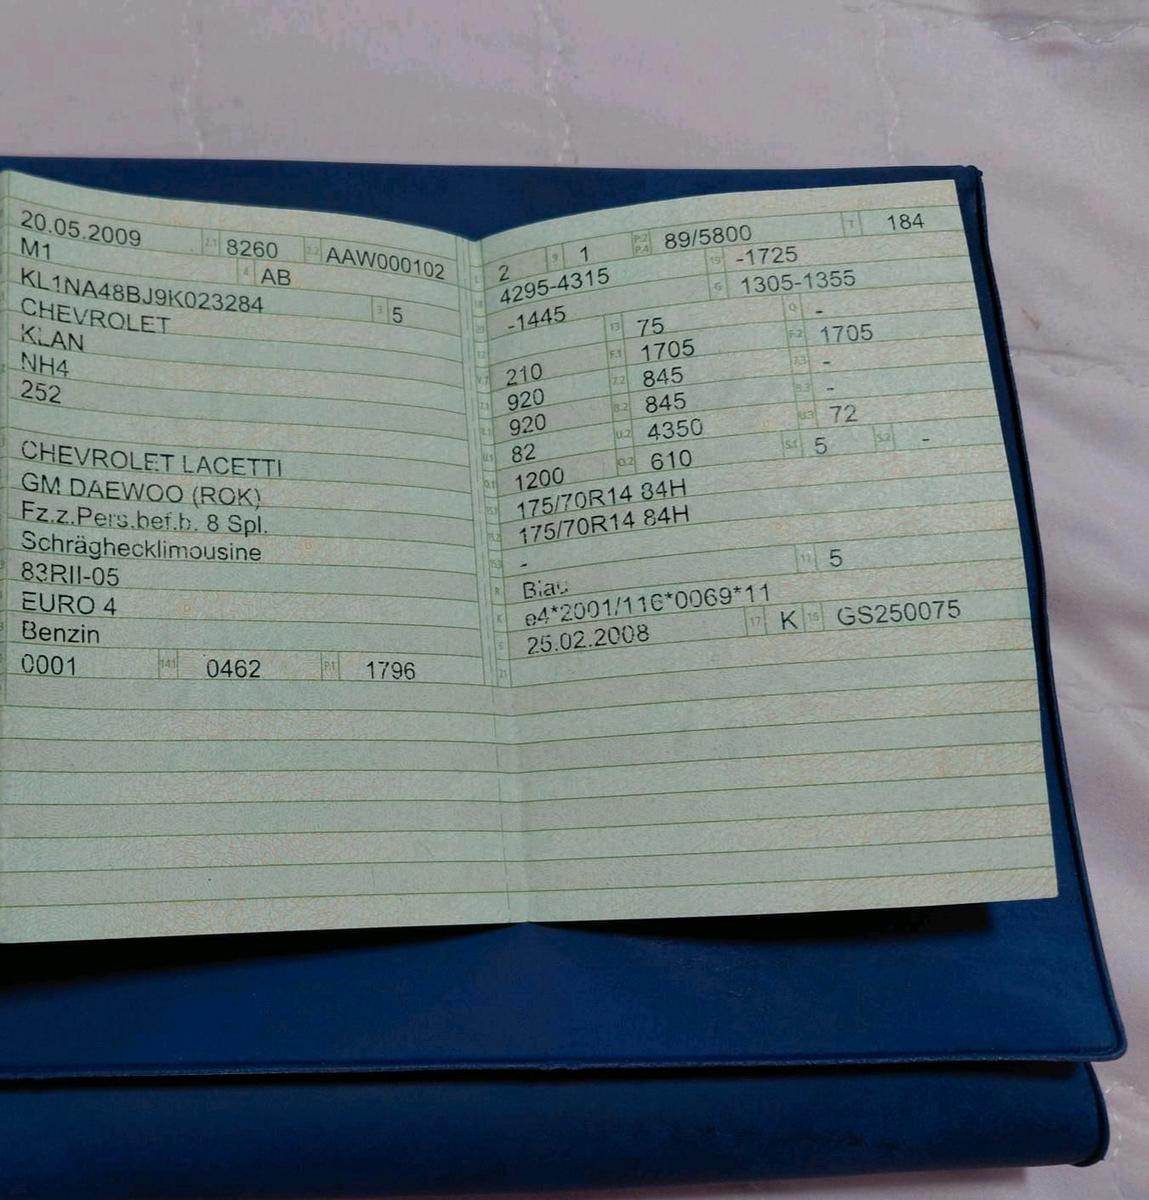 20.05.2009 2.1 8260 2.2 AAW000102
M1 4 AB
KL1NA48BJ9K023284 3 5
CHEVROLET
KLAN
NH4
252
CHEVROLET LACETTI
GM DAEWOO (ROK)
Fz.z.Pers.bef.b. 8 Spl.
Schräghecklimousine
83RII-05
EURO 4
Benzin
0001 14.1 0462 P.1 1796
2 9 1 P.2 P.4 89/5800 T 184
4295-4315 19 -1725
-1445 G 1305-1355
13 75 Q -
210 F.1 1705 F.2 1705
920 7.2 845 7.3 -
920 8.2 845 8.3 -
82 U.2 4350 U.3 72
1200 O.2 610 S.1 5 S.2 -
175/70R14 84H
175/70R14 84H
-
Blau 11 5
e4*2001/116*0069*11
25.02.2008 17 K 16 GS250075
21